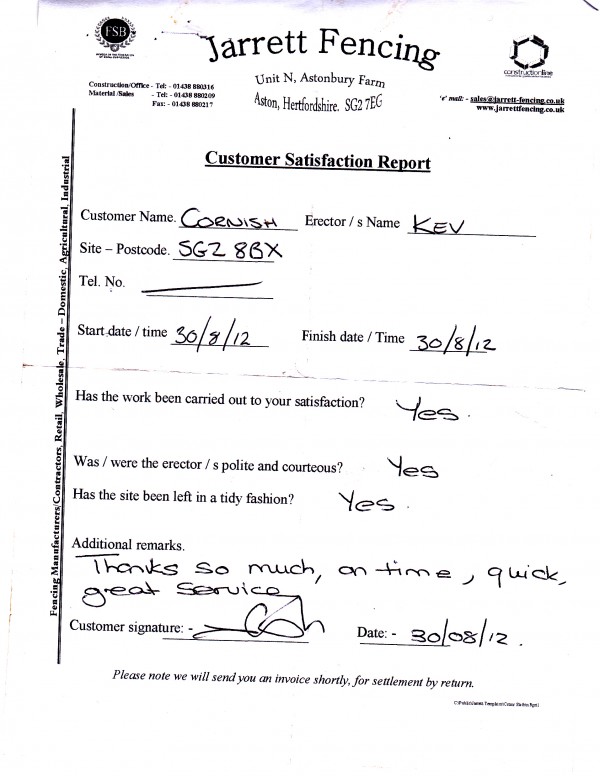 FSB
Jarrett Fencing
constructionline
Unit N, Astonbury Farm
Aston, Hertfordshire. SG2 7EG
Construction/Office - Tel: - 01438 880316
Material /Sales - Tel: - 01438 880209
Fax: - 01438 880217
'e' mail: - sales@jarrett-fencing.co.uk
www.jarrettfencing.co.uk
Customer Satisfaction Report
Fencing Manufacturers/Contractors, Retail, Wholesale, Trade – Domestic, Agricultural, Industrial
Customer Name. CORNISH Erector / s Name KEV
Site – Postcode. SG2 8BX
Tel. No.
Start date / time 30/8/12 Finish date / Time 30/8/12
Has the work been carried out to your satisfaction? Yes.
Was / were the erector / s polite and courteous? Yes
Has the site been left in a tidy fashion? Yes.
Additional remarks.
Thanks so much, on time, quick,
great service
Customer signature: - Date: - 30/08/12.
Please note we will send you an invoice shortly, for settlement by return.